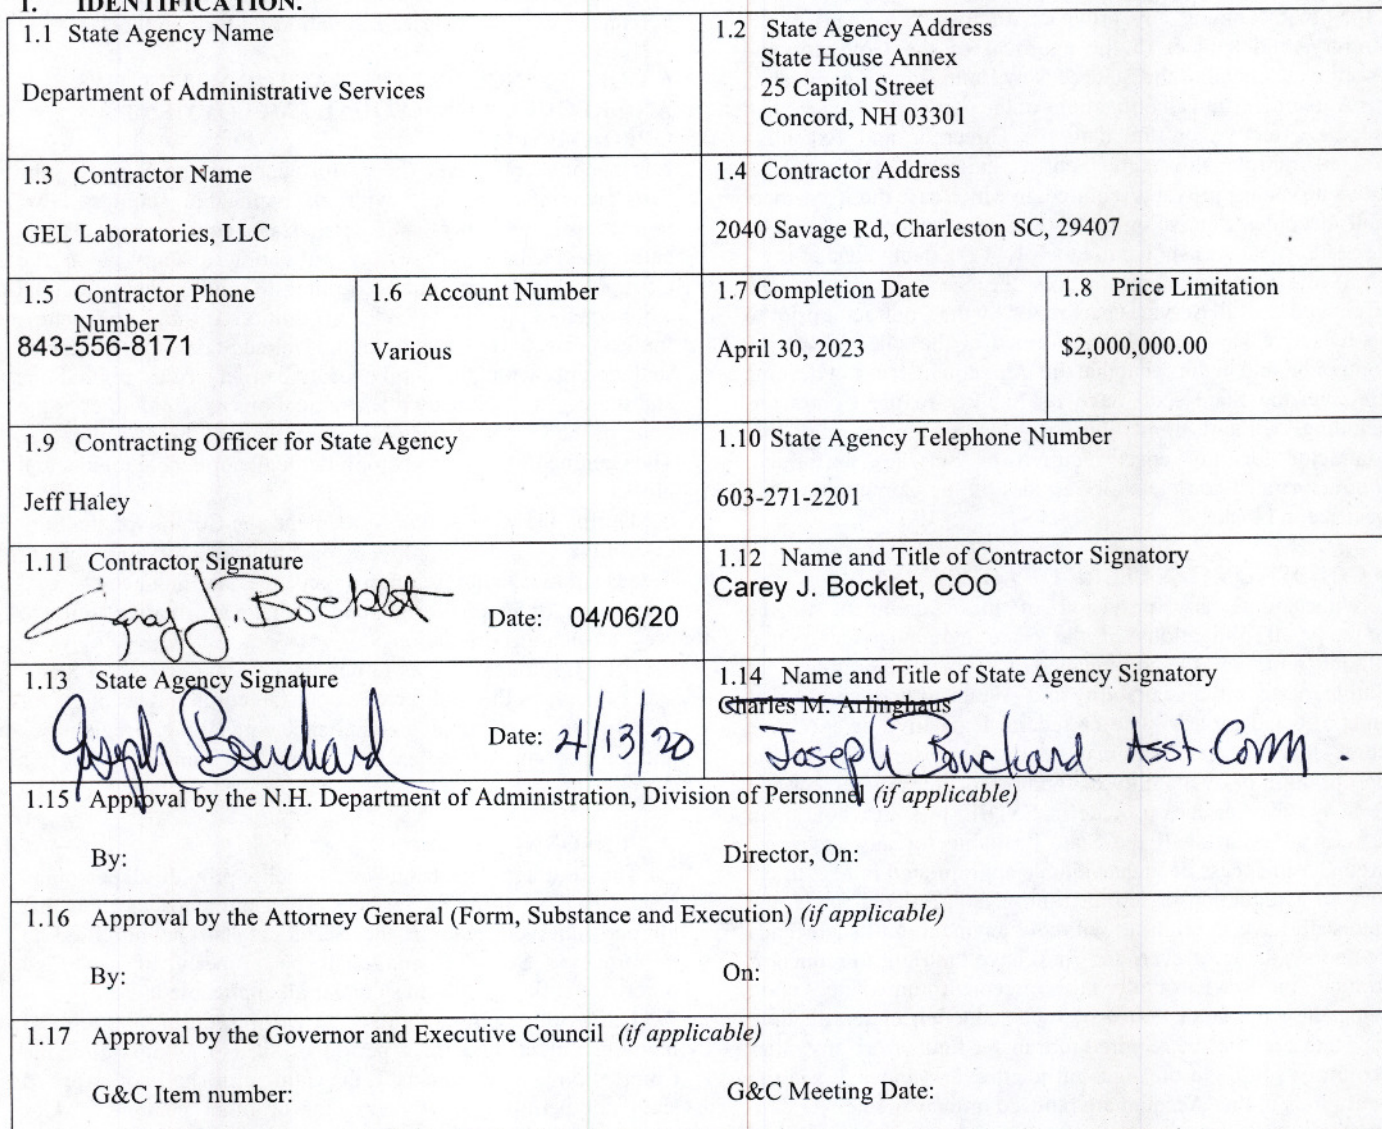 1. IDENTIFICATION.
1.1 State Agency Name
Department of Administrative Services
1.2 State Agency Address
State House Annex
25 Capitol Street
Concord, NH 03301
1.3 Contractor Name
GEL Laboratories, LLC
1.4 Contractor Address
2040 Savage Rd, Charleston SC, 29407
1.5 Contractor Phone
Number
843-556-8171
1.6 Account Number
Various
1.7 Completion Date
April 30, 2023
1.8 Price Limitation
$2,000,000.00
1.9 Contracting Officer for State Agency
Jeff Haley
1.10 State Agency Telephone Number
603-271-2201
1.11 Contractor Signature
Carey J. Bocklet
Date: 04/06/20
1.12 Name and Title of Contractor Signatory
Carey J. Bocklet, COO
1.13 State Agency Signature
Joseph Bouchard
Date: 4/13/20
1.14 Name and Title of State Agency Signatory
Charles M. Arlinghaus
Joseph Bouchard Asst Comm.
1.15 Approval by the N.H. Department of Administration, Division of Personnel (if applicable)
By: Director, On:
1.16 Approval by the Attorney General (Form, Substance and Execution) (if applicable)
By: On:
1.17 Approval by the Governor and Executive Council (if applicable)
G&C Item number: G&C Meeting Date: